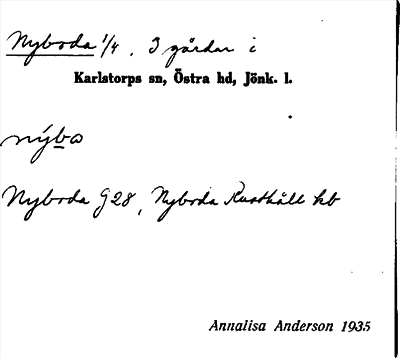 Nyboda 1/4. 3 gårdar i
Karlstorps sn, Östra hd, Jönk. l.
nýbo
Nyboda G28, Nyboda Rusthåll kb
Annalisa Anderson 1935